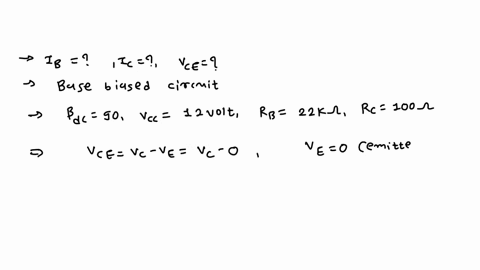 → I_B = ? , I_C = ?, V_CE = ?
→ Base biased circuit
→ β_dc = 90, V_CC = 12 volt, R_B = 22KΩ, R_C = 100Ω
⇒ V_CE = V_C - V_E = V_C - 0 , V_E = 0 (emitte